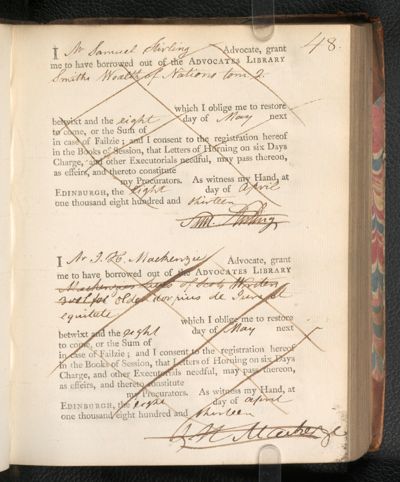 48.
I Mr Samuel Stirling Advocate, grant
me to have borrowed out of the ADVOCATES LIBRARY
Smiths Wealth of Nations tom 2
which I oblige me to restore
betwixt and the eight day of May next
to come, or the Sum of
in case of Failzie; and I consent to the registration hereof
in the Books of Session, that Letters of Horning on six Days
Charge, and other Executorials needful, may pass thereon,
as effeirs, and thereto constitute
my Procurators. As witness my Hand, at
EDINBURGH, the Eight day of April
one thousand eight hundred and thirteen
Sam. Stirling
I Mr J. H. Mackenzie Advocate, grant
me to have borrowed out of the ADVOCATES LIBRARY
Mackenzies of Scots Writers
de Jure et
equitate which I oblige me to restore
betwixt and the eight day of May next
to come, or the Sum of
in case of Failzie; and I consent to the registration hereof
in the Books of Session, that Letters of Horning on six Days
Charge, and other Executorials needful, may pass thereon,
as effeirs, and thereto constitute
my Procurators. As witness my Hand, at
EDINBURGH, the eight day of April
one thousand eight hundred and thirteen
J H Mackenzie